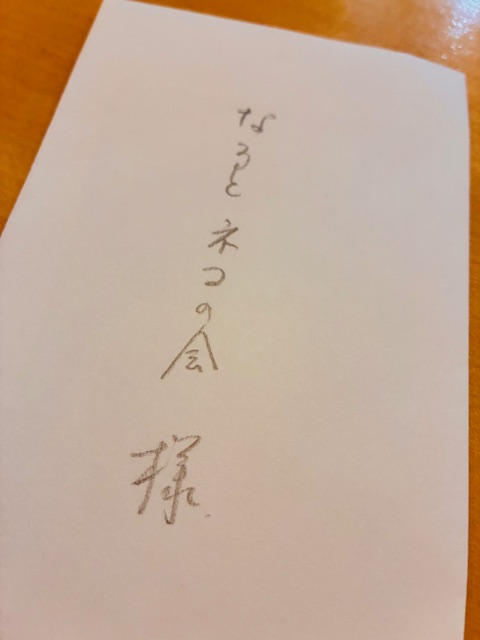 なると ネコの会 様